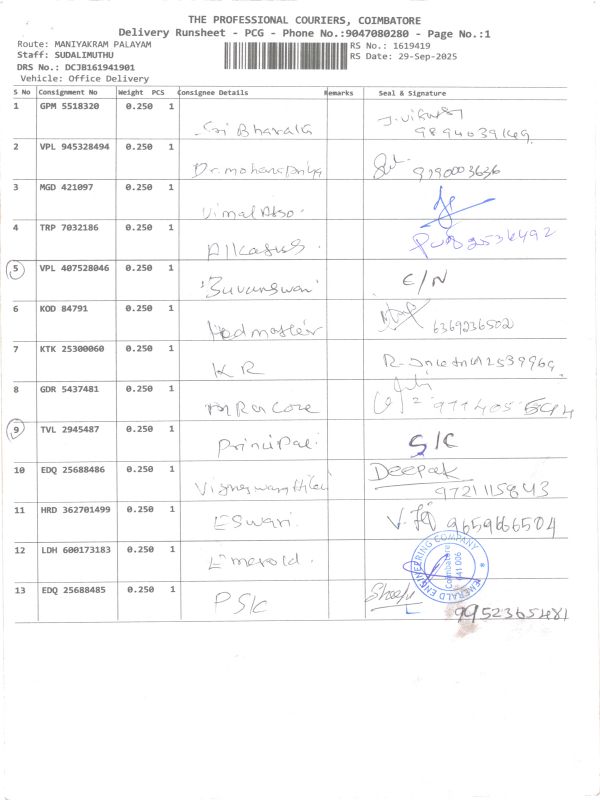 THE PROFESSIONAL COURIERS, COIMBATORE
Delivery Runsheet - PCG - Phone No.:9047080280 - Page No.:1
Route: MANIYAKRAM PALAYAM RS No.: 1619419
Staff: SUDALIMUTHU RS Date: 29-Sep-2025
DRS No.: DCJB161941901
Vehicle: Office Delivery
S No Consignment No Weight PCS Consignee Details Remarks Seal & Signature
1 GPM 5518320 0.250 1 Sri Bharath
2 VPL 945328494 0.250 1 Dr. mohanapriya 9790003636
3 MGD 421097 0.250 1 Vimal
4 TRP 7032186 0.250 1
5 VPL 407528046 0.250 1 E/N
6 KOD 84791 0.250 1 Hedmaster 6369236502
7 KTK 25300060 0.250 1 KR
8 GDR 5437481 0.250 1
9 TVL 2945487 0.250 1 Principal S/C
10 EDQ 25688486 0.250 1 Deepak
9721115843
11 HRD 362701499 0.250 1 ESwari 9659666504
12 LDH 600173183 0.250 1 Emerold
EMERALD ENGINEERING COMPANY
Coimbatore
641 006
13 EDQ 25688485 0.250 1 PSK